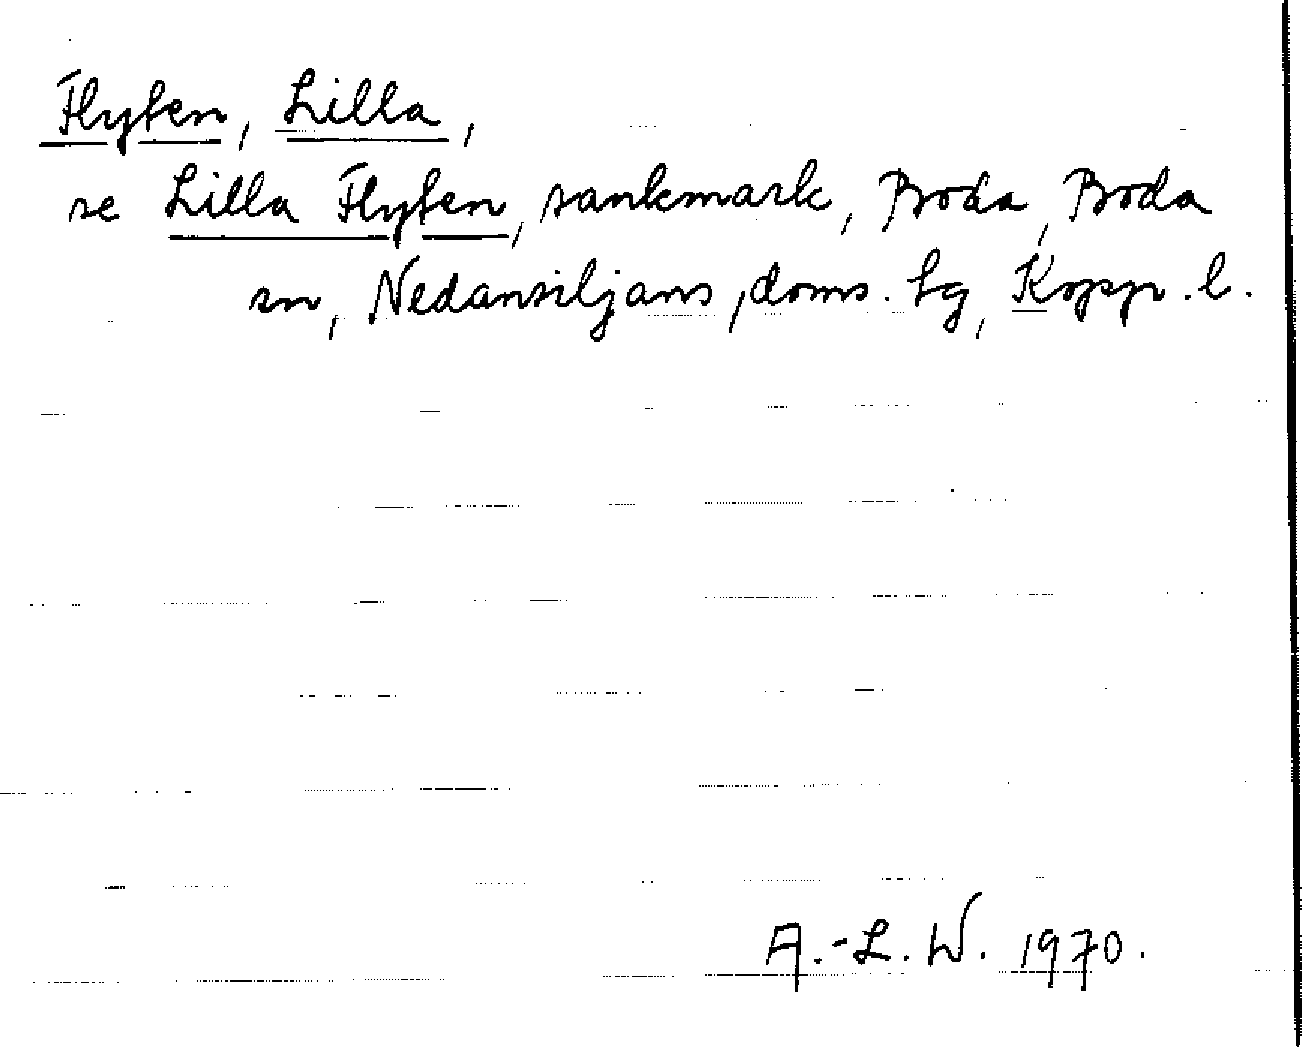 Flyten, Lilla,
se Lilla Flyten, sankmark, Boda, Boda
sn, Nedansiljans, doms. tg, Kopp. l.
A.-L. W. 1970.